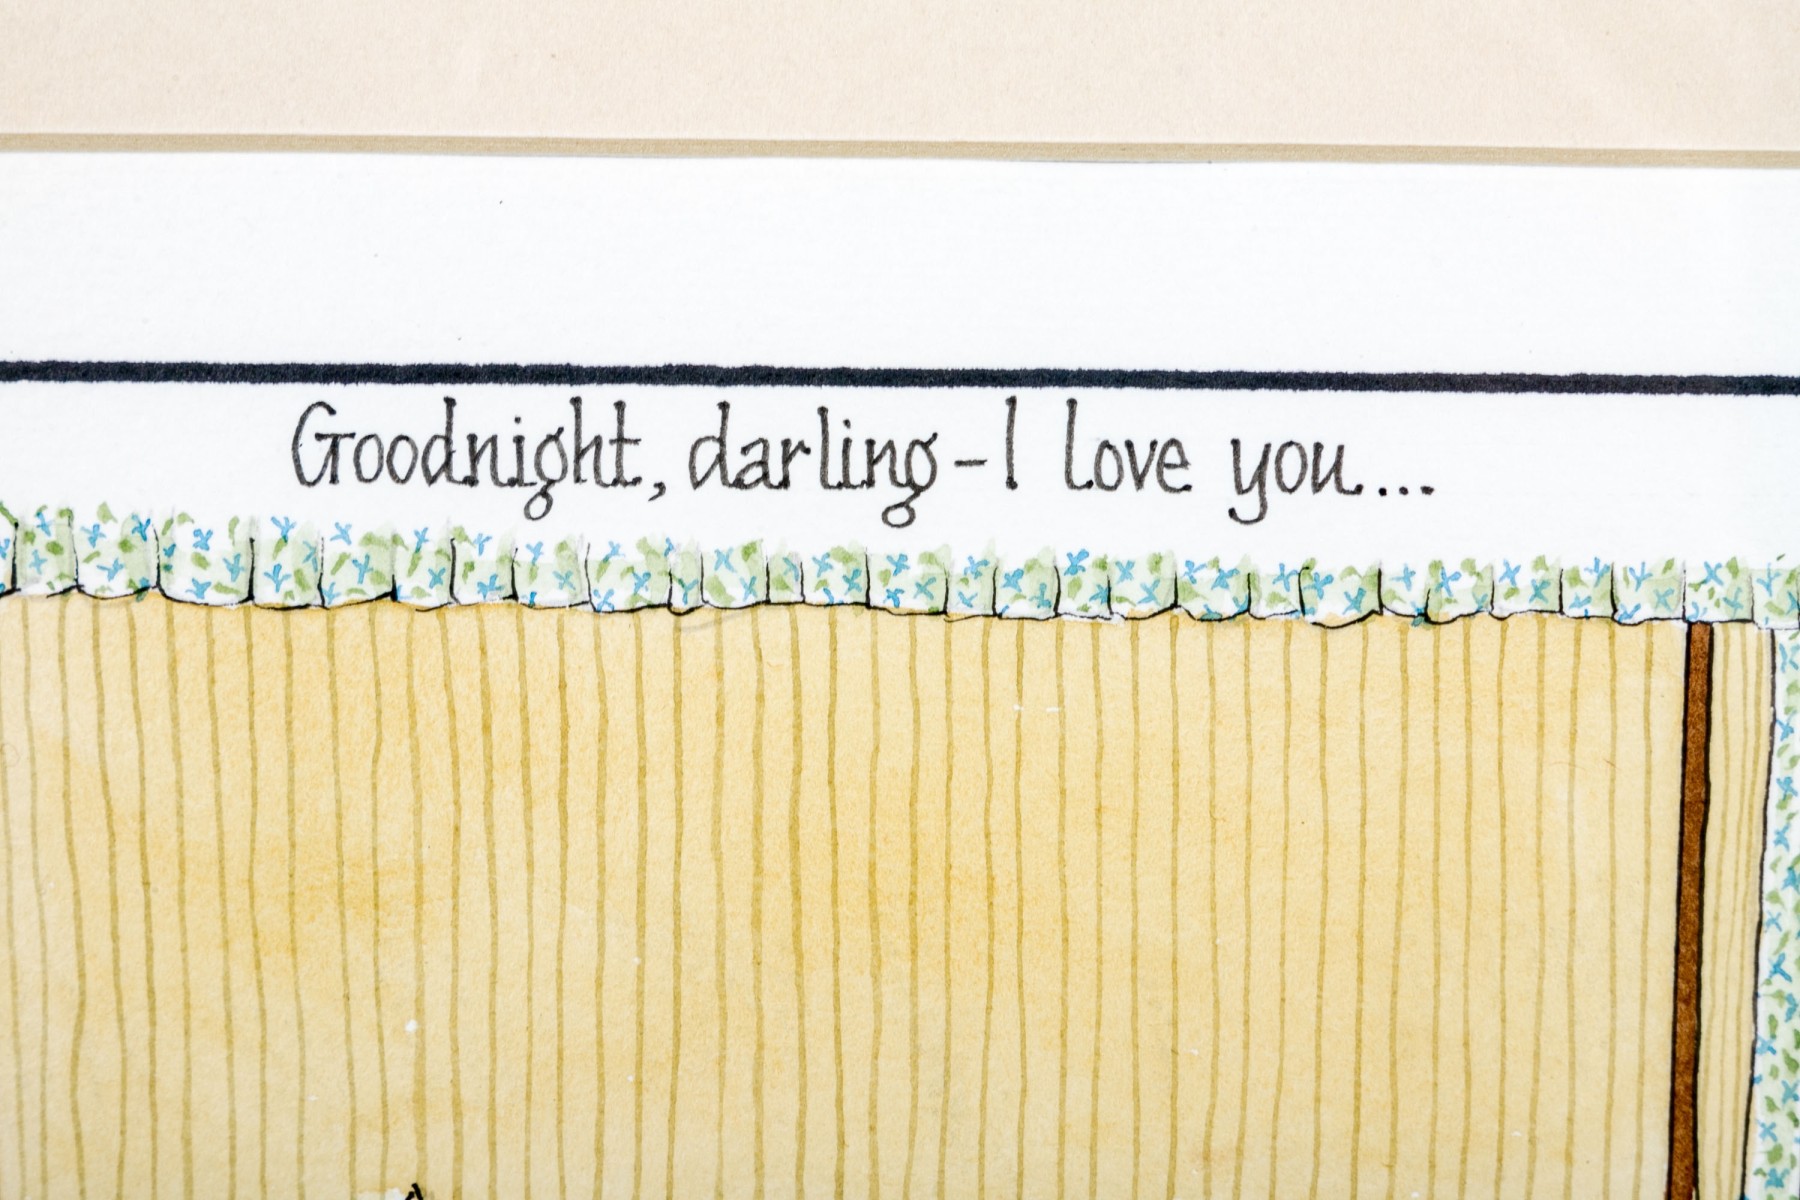 Goodnight, darling - I love you...